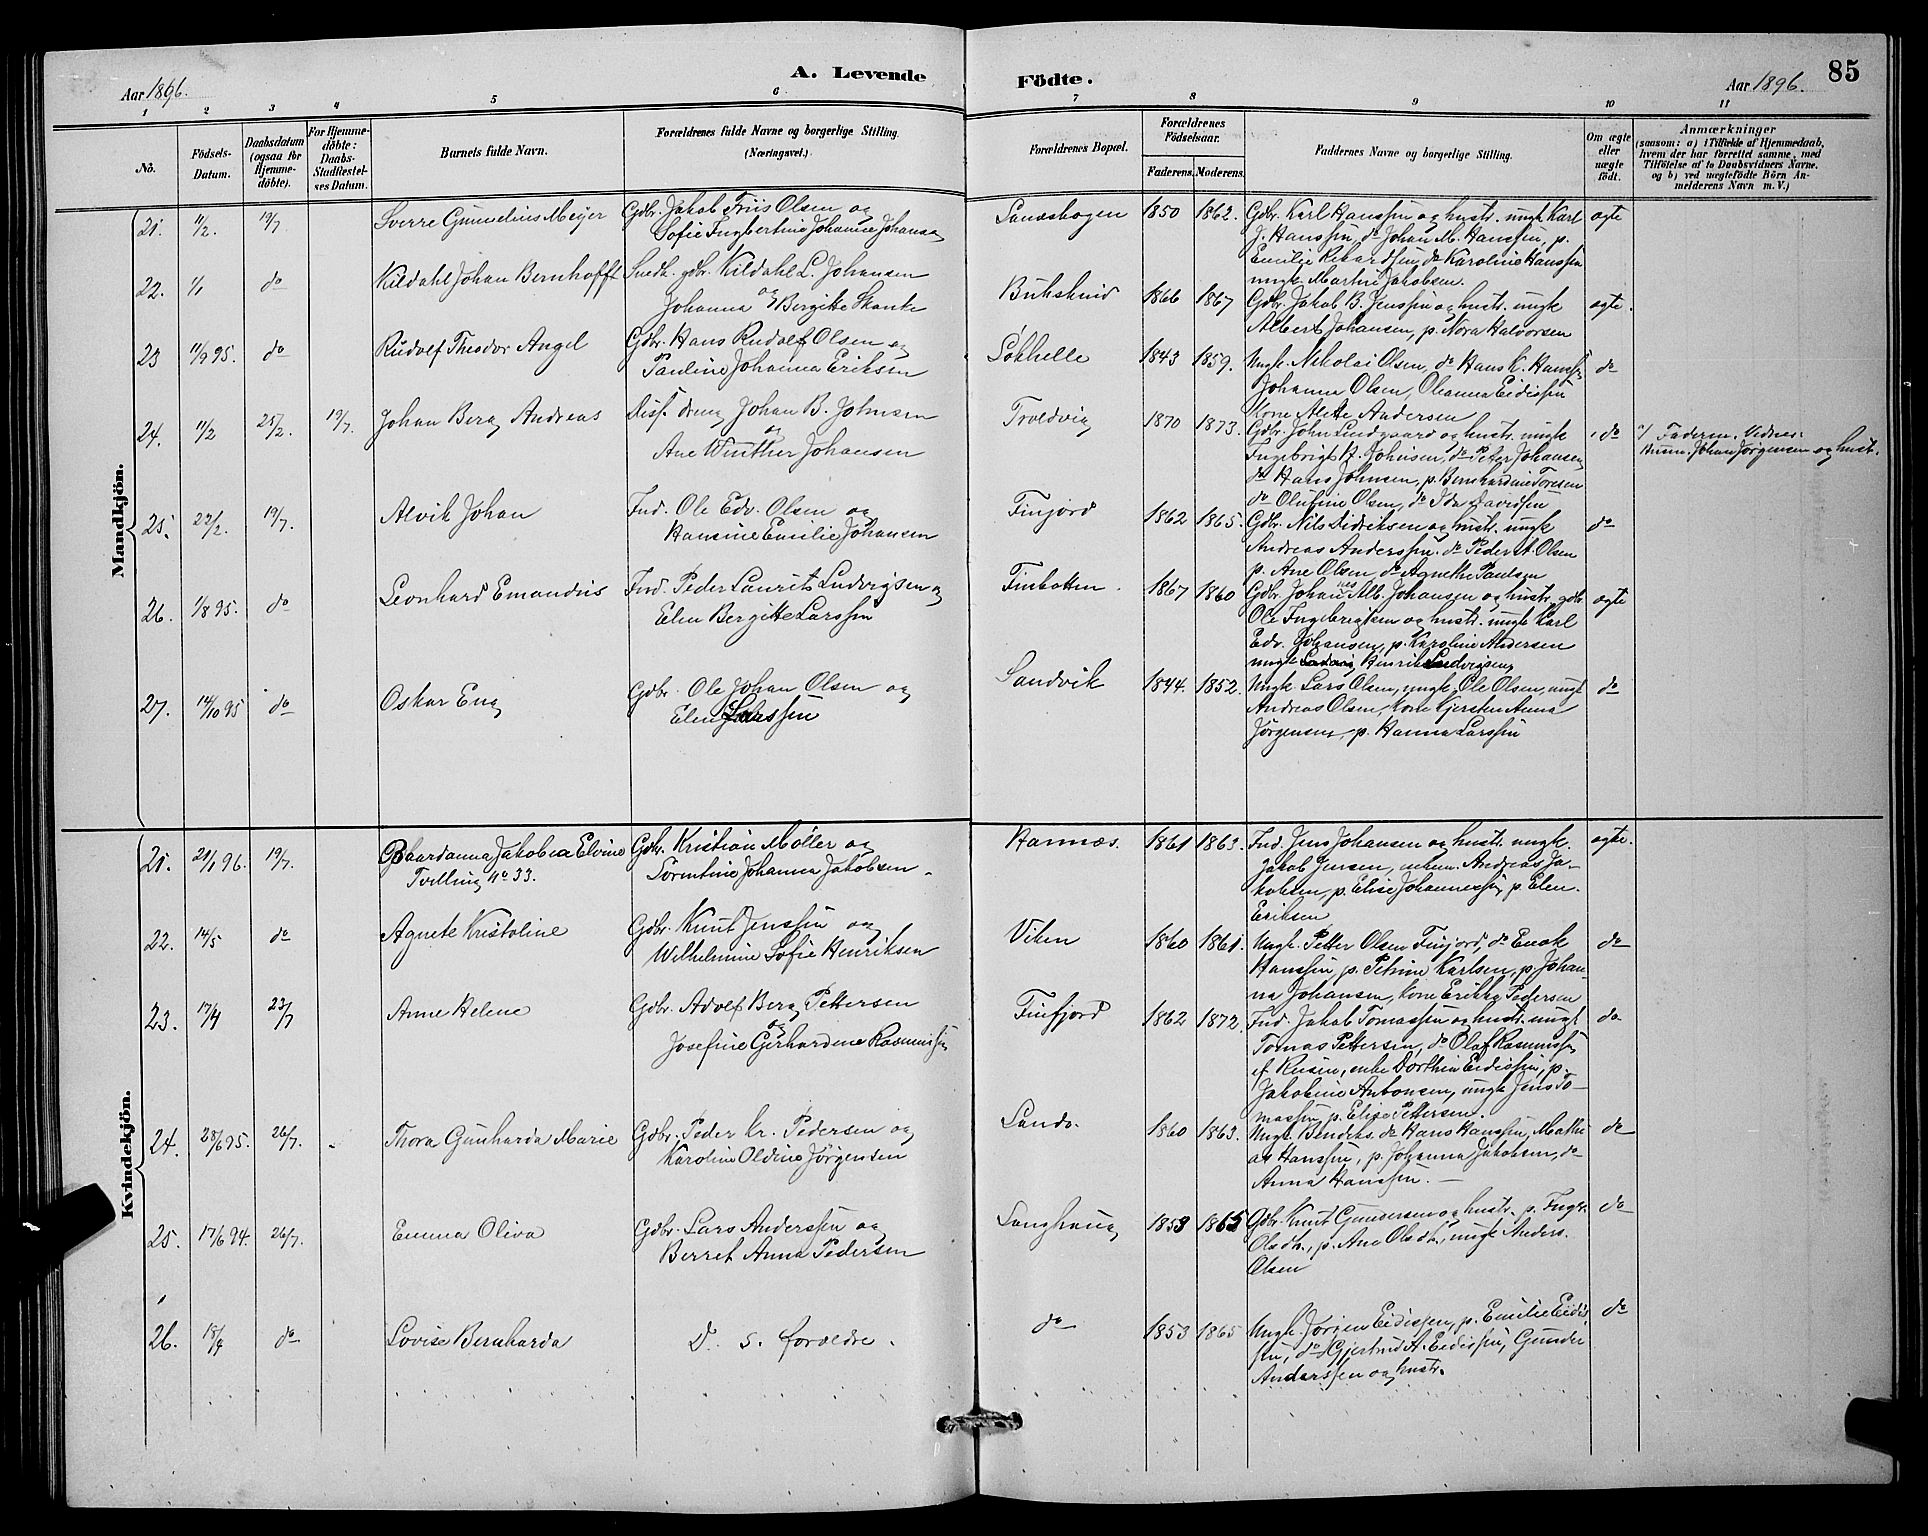 A. Levende Födte.
85
Aar 1896.
Aar 1896.
1 2 3 4 5 6 7 8 9 10 11
No.
Födsels-Datum.
Daabsdatum (ogsaa for Hjemme-döbte).
For Hjemme-döbte: Daabs-Stadfæstel-ses Datum.
Barnets fulde Navn.
Forældrenes fulde Navne og borgerlige Stilling.
(Næringsvei.)
Forældrenes Bopæl.
Forældrenes Födselsaar.
Faderens. Moderens.
Faddernes Navne og borgerlige Stilling.
Om ægte eller uægte födt.
Anmærkninger
(saasom: a) i Tilfælde af Hjemmedaab,
hvem der har forrettet samme, med
Tilföielse af to Daabsvidners Navne.
og b) ved uægtefödte Börn An-
melderens Navn m. V.)
Mandkjön.
21. 11/2. 19/7 Sverre Gunelius Meyer Gdbr. Jakob Friis Olsen og
Sofie Ingbertine Johansa
1850 1862. Gdbr. Karl Hanssen og hustr. ungk. Karl ægte
J. Hanssen, do Johan M. Hanssen, p.
Emilie Rikardsen, do Karoline Hanssen
ungk. Martin Jakobsen.
22. 1/1 do Kildahl Johan Bernhofft gdbr. Kildahl L. Johansen
Johanna og Bergitte Skanke
Bukskind 1866 1867 Gdbr. Jakob B. Jenssen og hustr. ungk ægte.
Albert Johansen, p. Nora Halvorsen
23 11/9 95. do Rudolf Theodor Angel Gdbr. Hans Rudolf Olsen og
Pauline Johanna Eriksen
Løkhelle 1843 1859. Ungk. Nikolai Olsen, do Hans K. Hanssen do
Johanna Olsen, Oleanna Eidissen
Kone Alette Andersen
24. 11/2 25/2. 19/7. Johan Berg Andreas Disp. dreng Johan B. Johnsen
og
Ane Winther Johansen
Troldvig 1870 1873. Gdbr. John Lindgaard og hustr. ungk do
Ingebrigt A. Johnsen, do Peter Johansen
do Hans Johnsen, p. Bernhardine Toresen
do Olufine Olsen, do Ida Davidsen
a/ Faderen. Vidner:
Johan Jørgensen og hust.
25. 22/2. 19/7. Alvik Johan Ind. Ole Edv. Olsen og
Hansine Emilie Johansen
Finjord 1862 1865. Gdbr. Nils Didriksen og hustr. ungk do
Andreas Anderssen. do Peder A. Olsen
p. Ane Olsen, do Agnethe Paulsen
26. 1/8 95. do Leonhard Emandius Ind. Peder Laurits Ludvigsen og
Elen Bergitte Larssen
Finbotten. 1867 1860 Gdbr. Johannes Alb. Johansen og hustr. gdbr. ægte
Ole Ingebrigtsen og hustr. ungk Karl
Edv. Johansen, p. Karoline Andersen
ungk Henrik Ludvigsen
27. 14/10 95 do Oskar Eng Gdbr. Ole Johan Olsen og
Elen Larssen
Sandvik 1844. 1852. Ungk Lars Olsen, ungk. Ole Olsen, ungk do
Andreas Olsen, Kone Kjersten Anna
Jørgensen, p. Hanna Larssen
Kvindekjön.
21. 21/1 96. 19/7. Baardanna Jakobea Elvine Gdbr. Kristian Møller og
Tvilling No 33. Sorentine Johanna Jakobsen.
Hannæs. 1861 1863. Ind. Jens Johansen og hustr. ungk. ægte.
Jakob Jensen, enkem. Andreas Ja-
kobsen, p. Elise Johannessen, p. Elen
Eriksen
22. 14/5 do Agnete Kristoline Gdbr. Knut Jenssen og
Wilhelmine Sofie Henriksen
Viken 1860 1861. Ungk. Petter Olsen Finjord, do Enok do
Hanssen p. Petrine Karlsen, p. Johan-
na Johansen, Kone Erikka Pedersen
23. 17/4 23/7 Anne Helene Gdbr. Adolf Berg Pettersen
og
Josefine Gerhardine Rasmussen
Finfjord 1862 1872. Ind. Jakob Tomassen og hustr. ungk do
Tomas Pettersen, do Olaf Rasmussen
enke Dorthea Eidissen, p.
Jakobine Antonsen, ungk Jens To-
massen, p. Elise Pettersen.
24. 28/6 95. 26/7. Thora Gunharda Marie Gdbr. Peder Kr. Pedersen og
Karoline Oldine Jørgensen
Sando. 1860 1863. Ungk. Bendiks. do Hans Hanssen, Mathi- do
as Hanssen, p. Johanna Jakobsen, do
Anna Hanssen.
25. 17/6 94. 26/7. Emma Oliva Gdbr. Lars Anderssen og
Berret Anna Pedersen
Langhaug 1853 1865 Gdbr. Knut Gundersen og hustr. p. Ingbr. do
Olsdt., p. Ane Olsdt., ungk Anders.
Olsen
26. 18/4 do Lovise Bernharda D. s. forældre.
do 1853 1865 Ungk. Jørgen Eidissen, p. Emilie Eidis- do
sen, do Gjertrud A. Eidissen, Gunder
Anderssen og hustr.